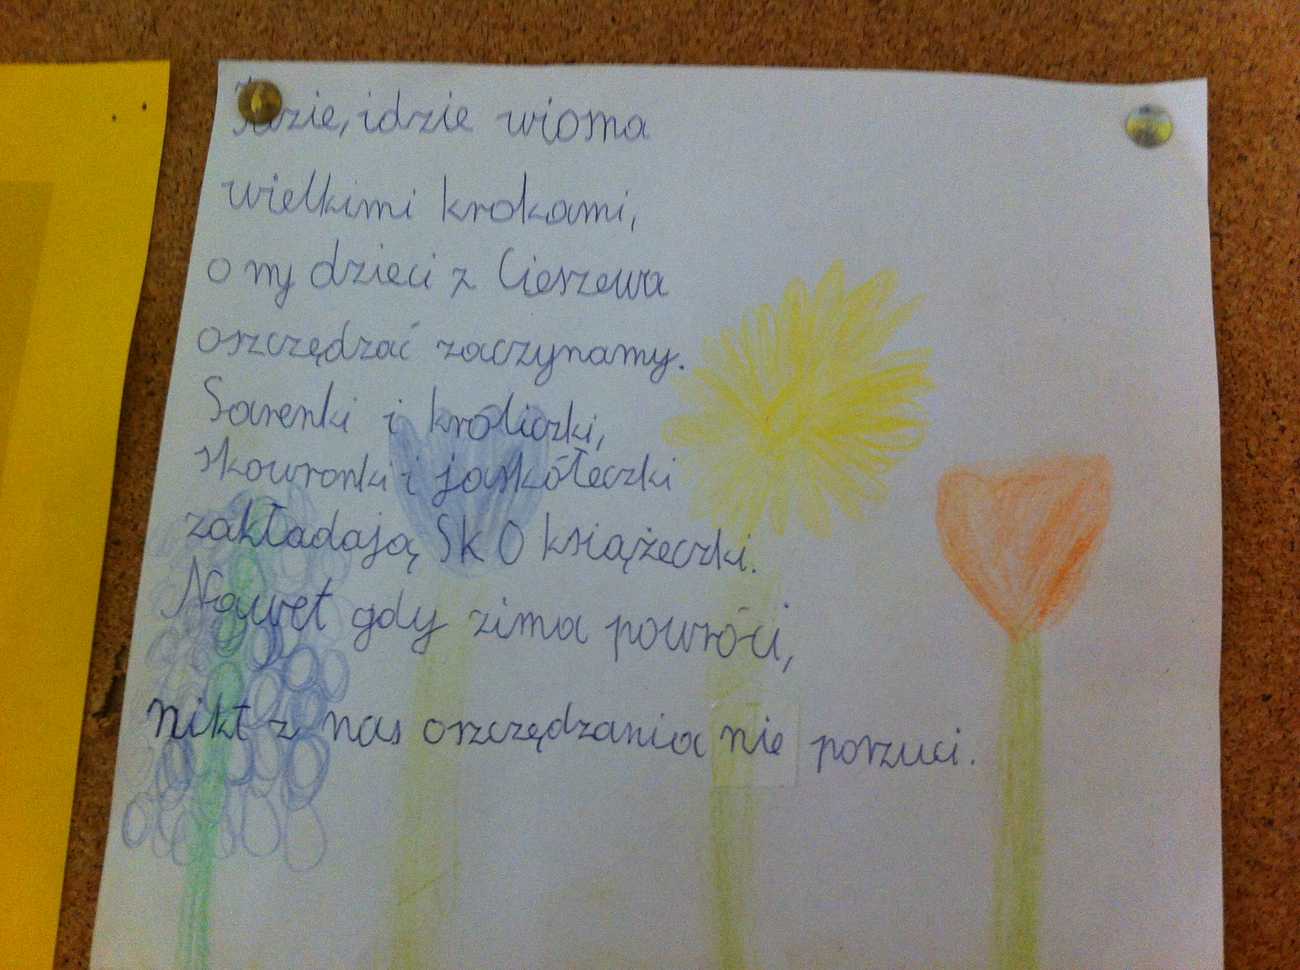 Idzie, idzie wiosna
wielkimi krokami,
a my dzieci z Cieszewa
oszczędzać zaczynamy.
Sarenki i króliczki,
skowronki i jaskółeczki
zakładają SKO książeczki.
Nawet gdy zima powróci,
nikt z nas oszczędzania nie porzuci.